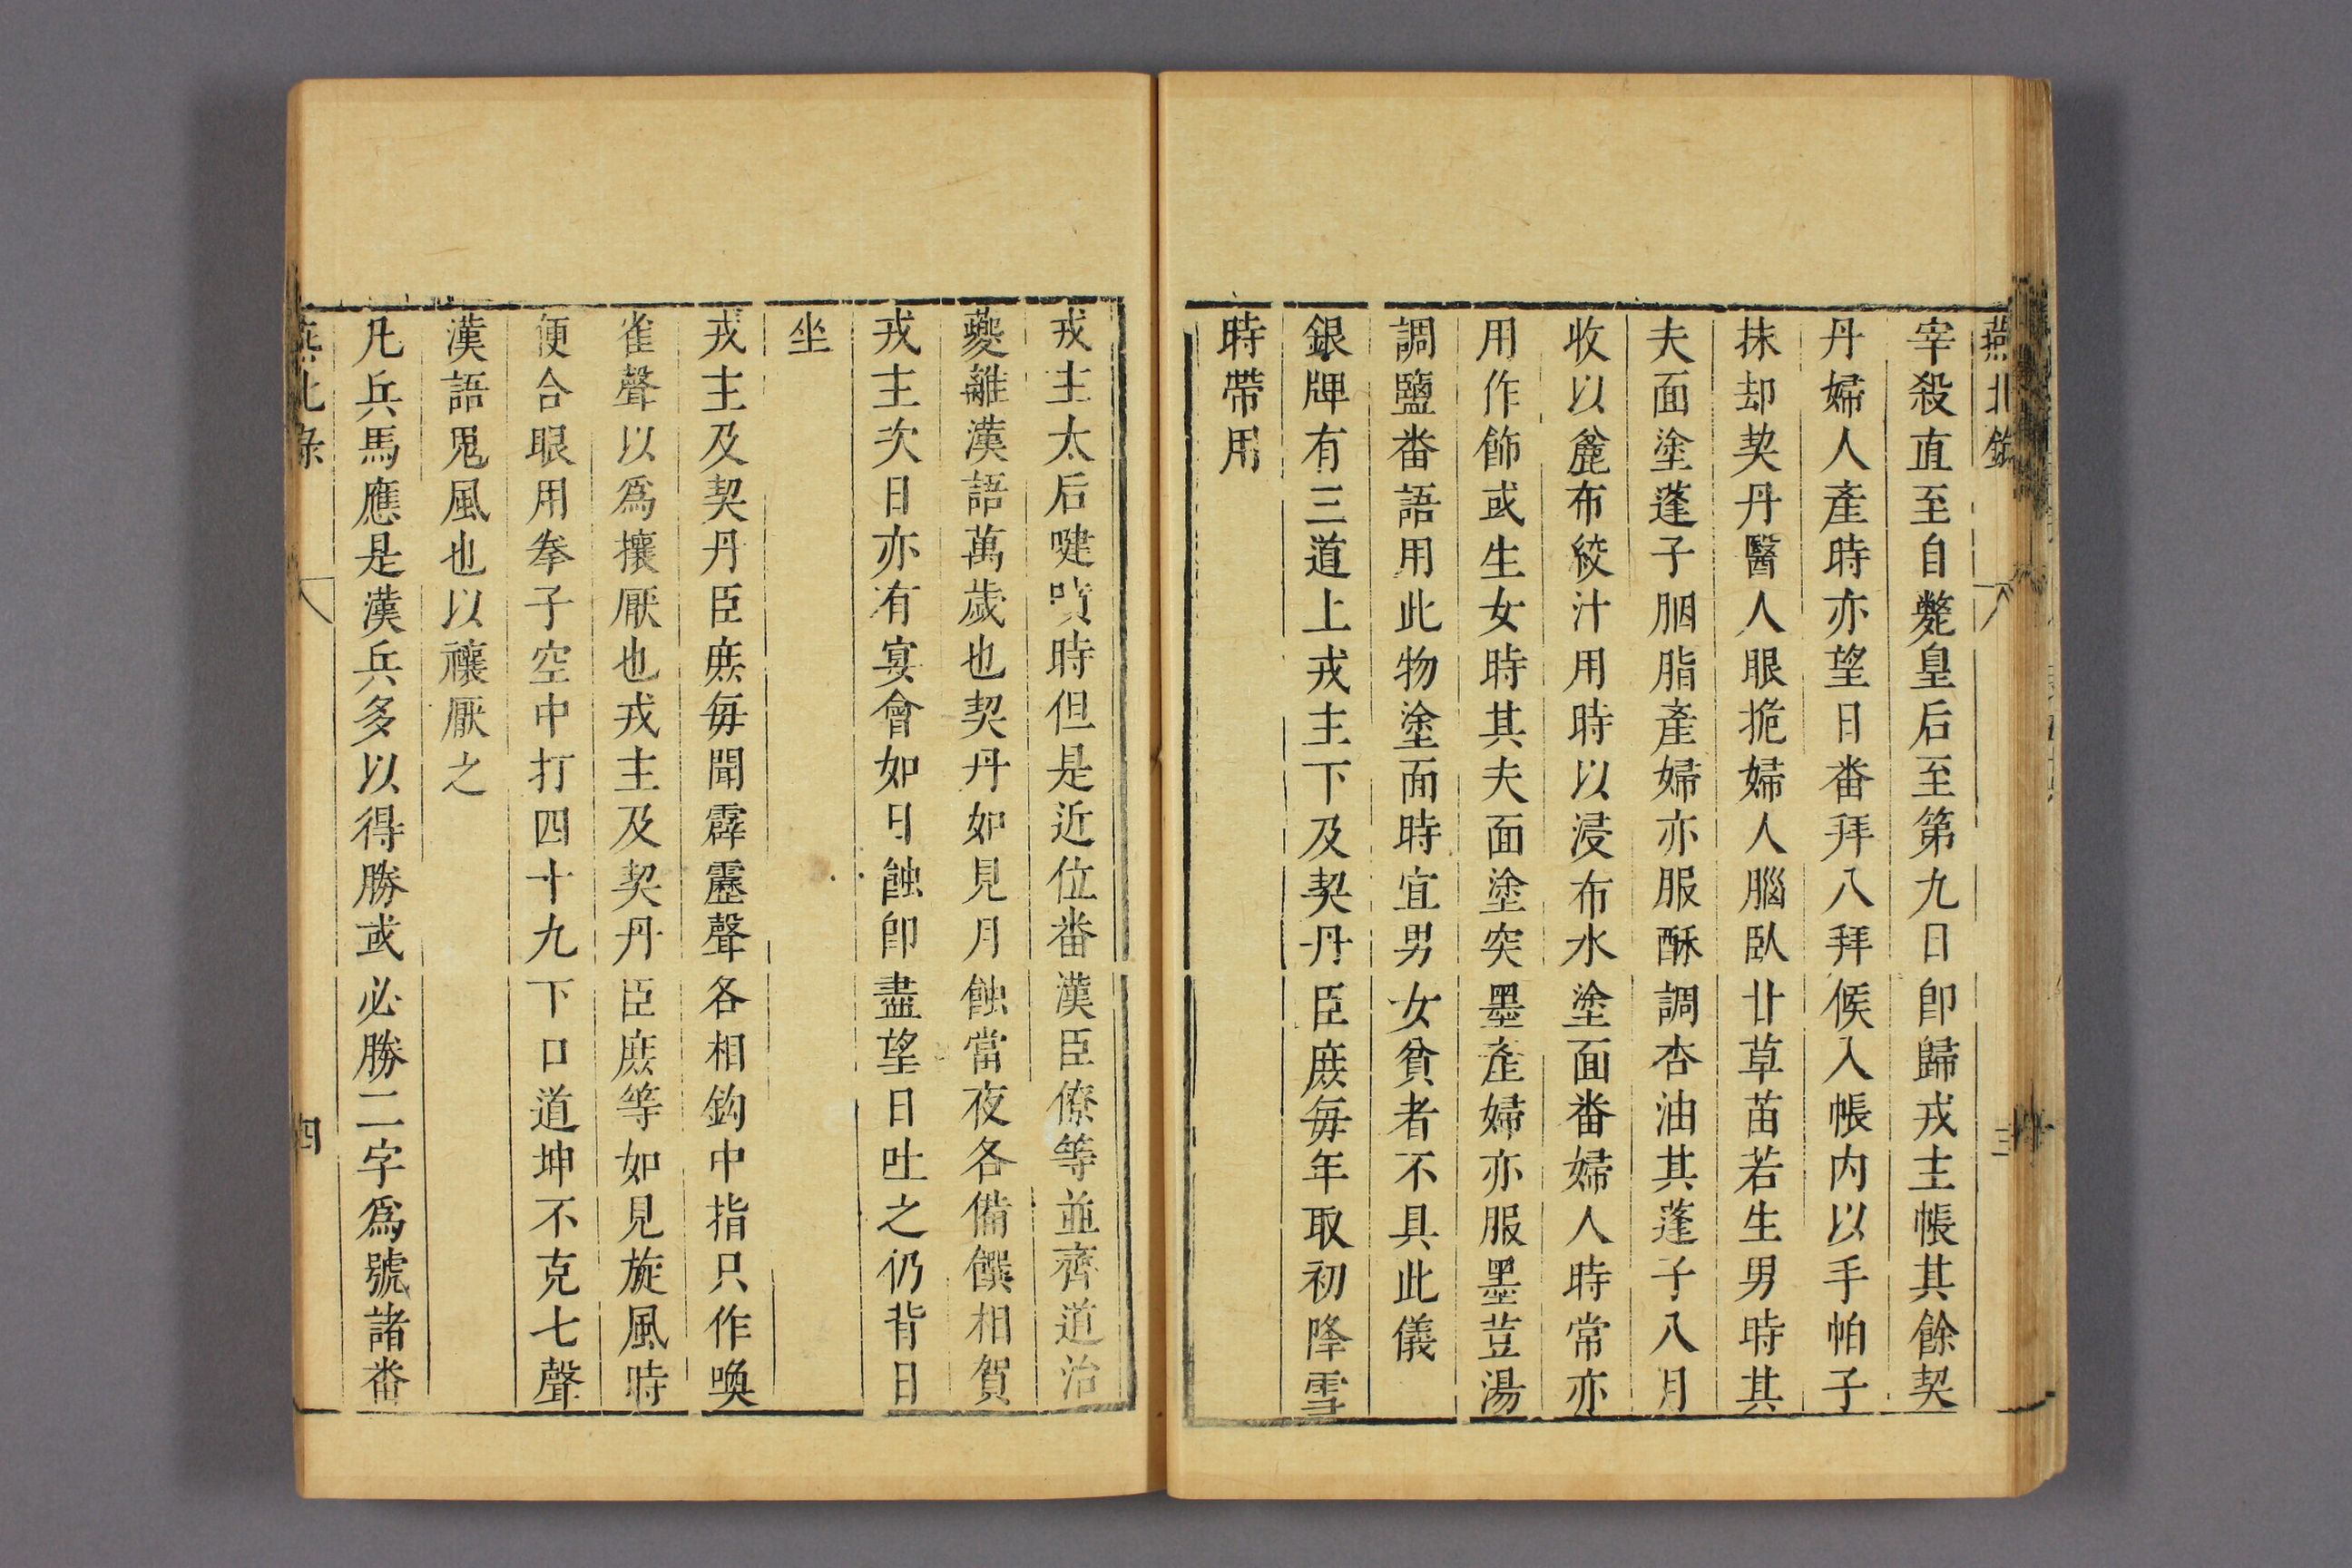 燕北錄 三
宰殺直至自斃皇后至第九日卽歸戎主帳其餘契
丹婦人產時亦望日番拜八拜候入帳內以手帕子
抹却契丹醫人眼抱婦人腦臥甘草苗若生男時其
夫面塗蓬子胭脂產婦亦服酥調杏油其蓬子八月
收以麄布絞汁用時以浸布水塗面番婦人時常亦
用作飾或生女時其夫面塗突墨產婦亦服墨荳湯
調鹽番語用此物塗面時宜男女貧者不具此儀
銀牌有三道上戎主下及契丹臣庶每年取初降雪
時帶用
戎主太后嚏噴時但是近位番漢臣僚等並齊道治
夔離漢語萬歲也契丹如見月蝕當夜各備饌相賀
戎主次日亦有宴會如日蝕卽盡望日吐之仍背日
坐
戎主及契丹臣庶每聞霹靂聲各相鈎中指只作喚
雀聲以爲攘厭也戎主及契丹臣庶等如見旋風時
便合眼用拳子空中打四十九下口道坤不克七聲
漢語䰟風也以禳厭之
凡兵馬應是漢兵多以得勝或必勝二字爲號諸番
燕北錄 四